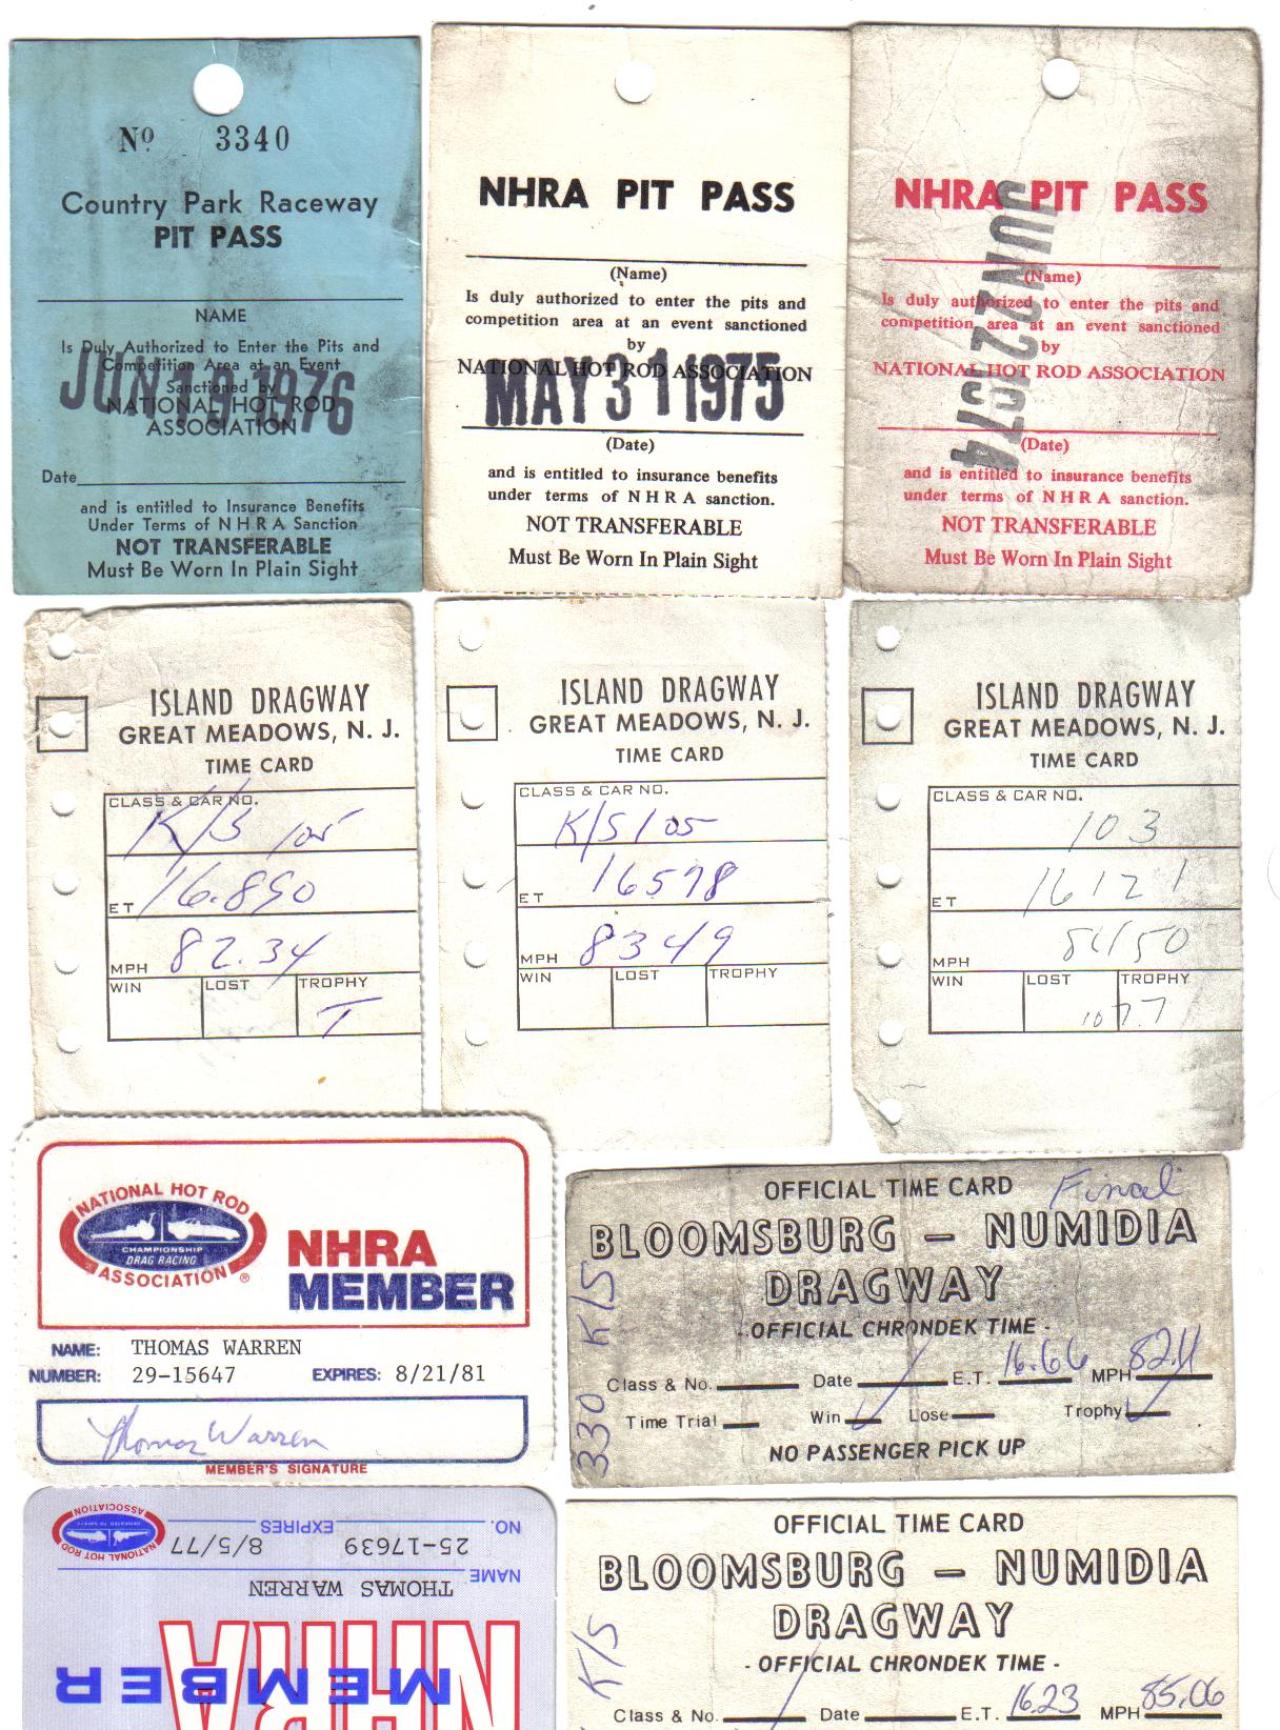 Nº 3340
Country Park Raceway
PIT PASS
NAME
Is Duly Authorized to Enter the Pits and
Competition Area at an Event
Sanctioned by
NATIONAL HOT ROD
ASSOCIATION
JUN 19 1976
Date
and is entitled to Insurance Benefits
Under Terms of N H R A Sanction
NOT TRANSFERABLE
Must Be Worn In Plain Sight
NHRA PIT PASS
(Name)
Is duly authorized to enter the pits and
competition area at an event sanctioned
by
NATIONAL HOT ROD ASSOCIATION
MAY 31 1975
(Date)
and is entitled to insurance benefits
under terms of N H R A sanction.
NOT TRANSFERABLE
Must Be Worn In Plain Sight
NHRA PIT PASS
(Name)
Is duly authorized to enter the pits and
competition area at an event sanctioned
by
NATIONAL HOT ROD ASSOCIATION
JUN 22 1974
(Date)
and is entitled to insurance benefits
under terms of N H R A sanction.
NOT TRANSFERABLE
Must Be Worn In Plain Sight
ISLAND DRAGWAY
GREAT MEADOWS, N. J.
TIME CARD
CLASS & CAR NO.
K/S 105
ET 16.890
MPH 82.34
WIN LOST TROPHY
T
ISLAND DRAGWAY
GREAT MEADOWS, N. J.
TIME CARD
CLASS & CAR NO.
K/S 105
ET 16578
MPH 8349
WIN LOST TROPHY
ISLAND DRAGWAY
GREAT MEADOWS, N. J.
TIME CARD
CLASS & CAR NO.
103
ET 16121
MPH
WIN LOST TROPHY
NATIONAL HOT ROD
CHAMPIONSHIP
DRAG RACING
ASSOCIATION ®
NHRA
MEMBER
NAME: THOMAS WARREN
NUMBER: 29-15647 EXPIRES: 8/21/81
Thomas Warren
MEMBER'S SIGNATURE
OFFICIAL TIME CARD Final
BLOOMSBURG — NUMIDIA
DRAGWAY
- OFFICIAL CHRONDEK TIME -
Class & No. Date E.T. 16.66 MPH 82.11
Time Trial Win Lose Trophy
NO PASSENGER PICK UP
330 K/S
NHRA
MEMBER
NAME THOMAS WARREN
NO. 25-17639 EXPIRES 8/5/77
NATIONAL HOT ROD
ASSOCIATION
OFFICIAL TIME CARD
BLOOMSBURG — NUMIDIA
DRAGWAY
- OFFICIAL CHRONDEK TIME -
K/S
Class & No. Date E.T. 16.23 MPH 85.06